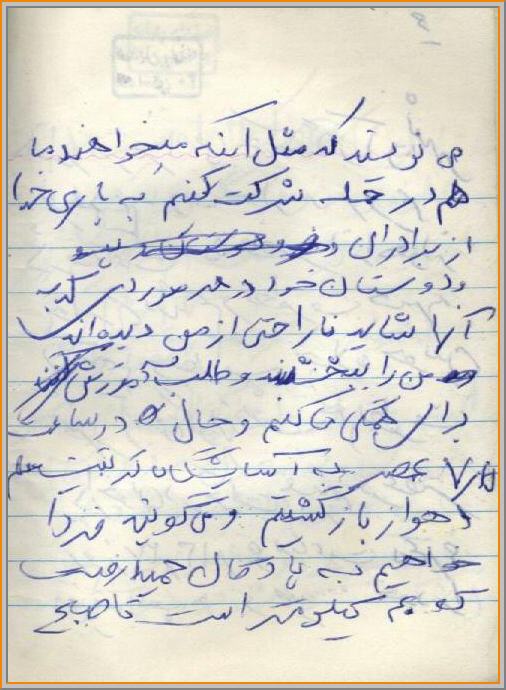 می نویسند که مثل اینکه میخواهند ما
هم در حمله شرکت کنیم به یاری خدا
از برادران
و دوستان خود در هر موردی که به
آنها شاید ناراحتی از من دیده‌اند
من را ببخشند و طلب آمرزش
برای همگی می‌کنم و حال در ساعت
۷ عصر به آسایشگاه تربیت معلم
اهواز بازگشتیم و می گویند فردا
خواهیم به پادگان حمید رفت
که کیلومتر است تا صبح